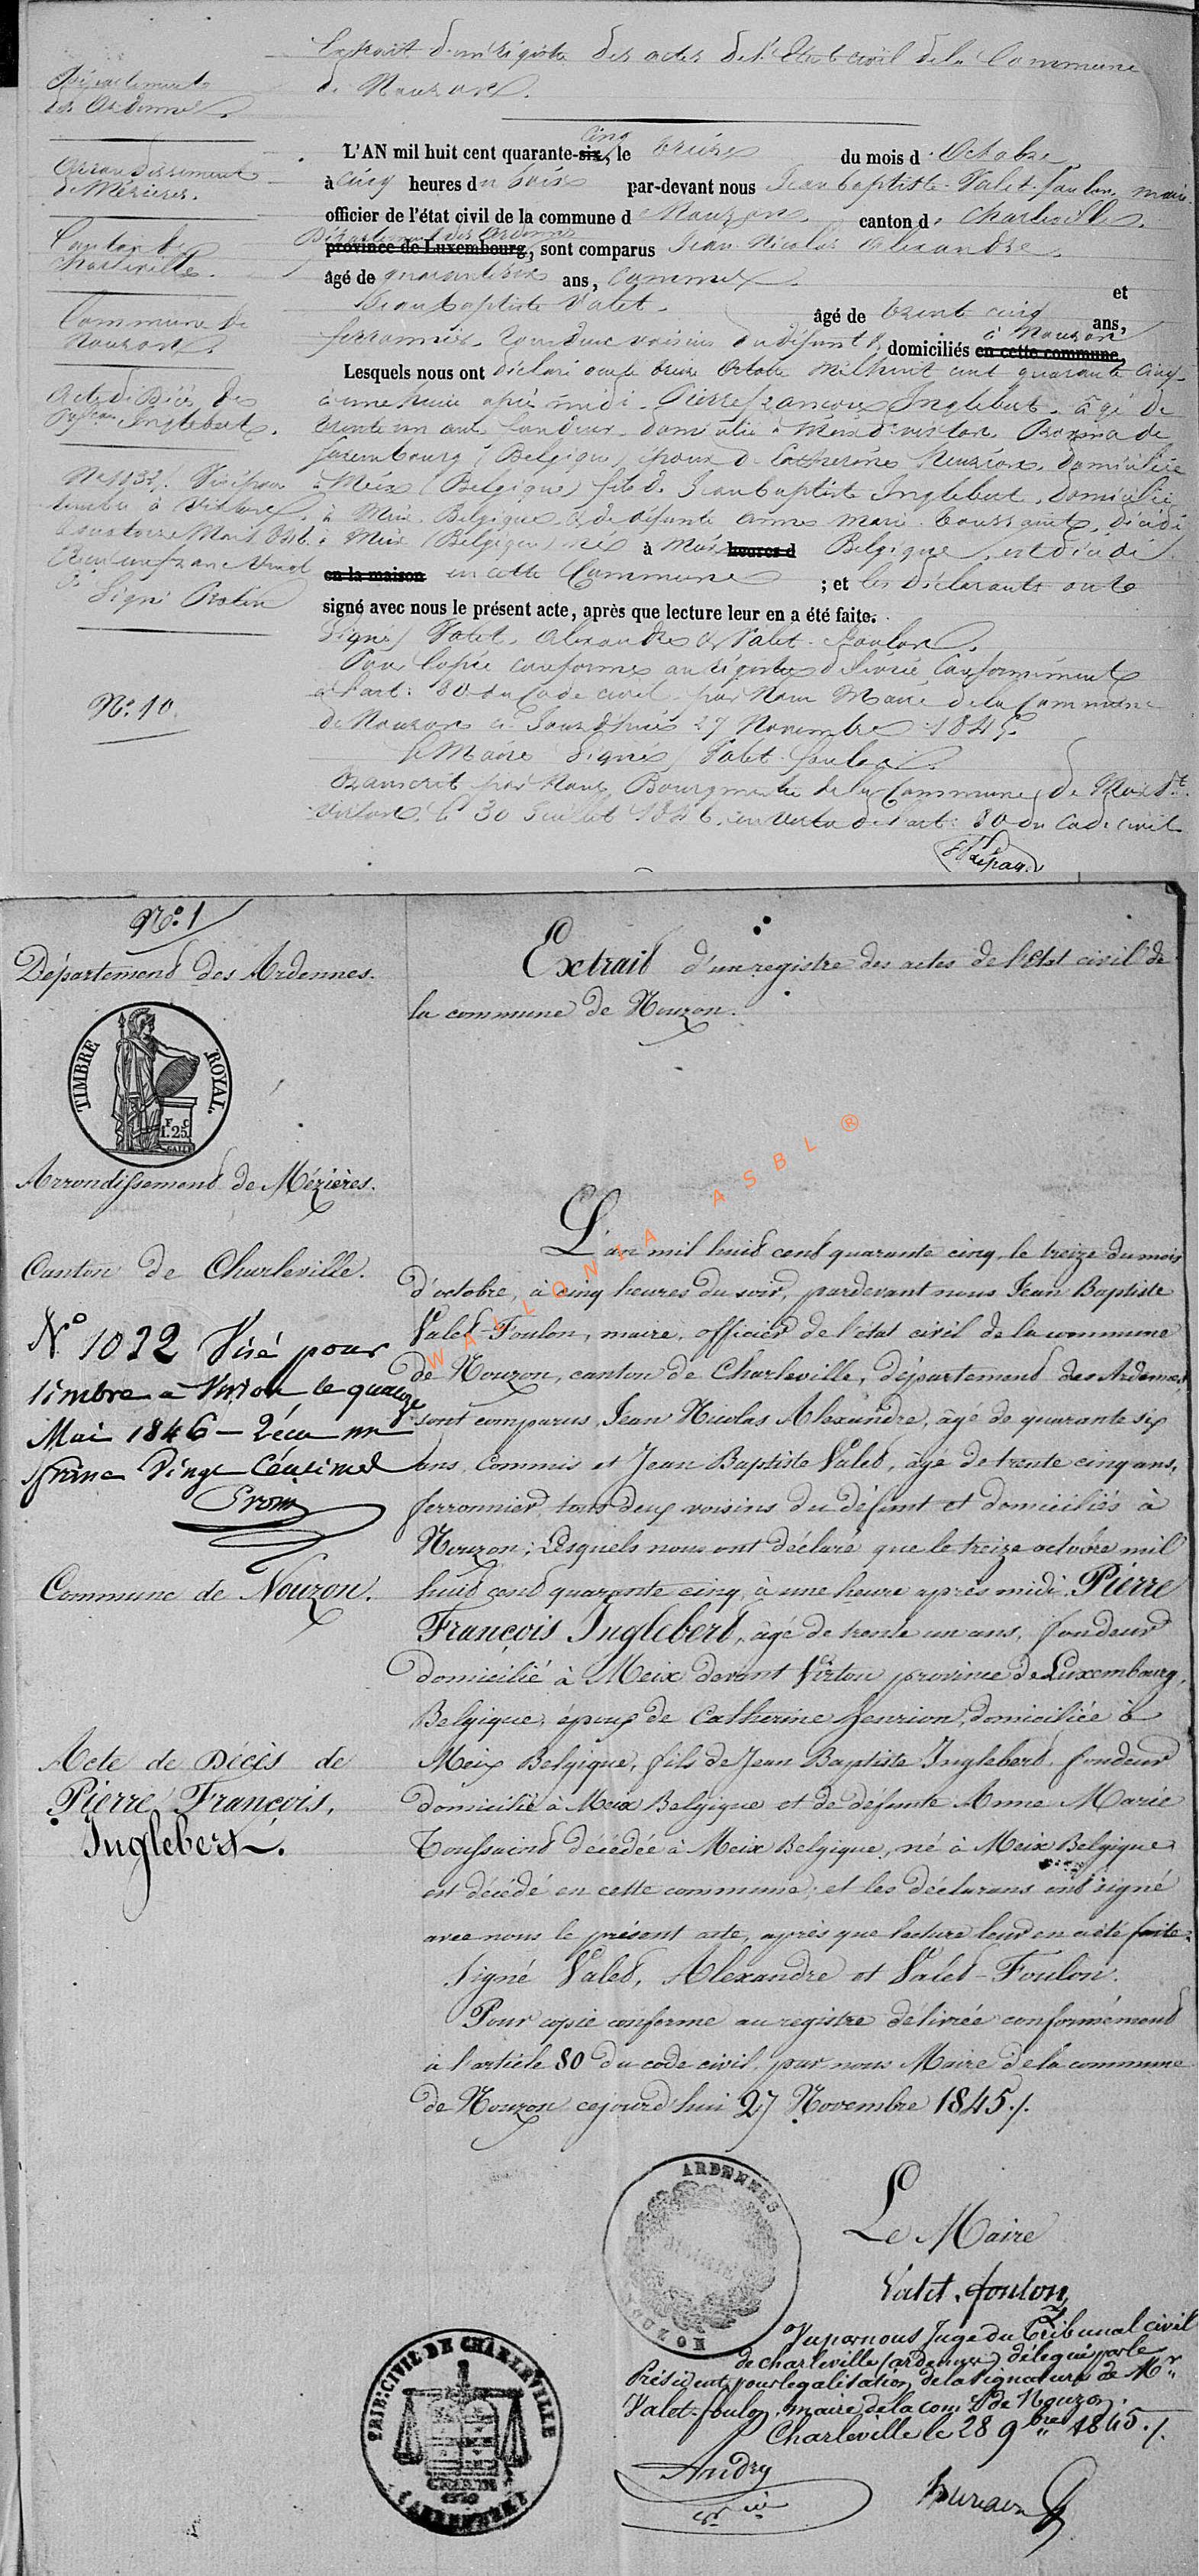 Extrait d'un registre des actes de l'Etat civil de la Commune
de Nouzon.
Département
des Ardennes.
Arrondissement
de Mézières.
Canton de
Charleville.
Commune de
Nouzon.
Acte de Décès de
Inglebert.
N° 1032. Visé pour
timbre à Virton
quatorze Mai
un franc vingt
Signé
N° 10
cinq
L'AN mil huit cent quarante-six, le treize du mois d'Octobre
à cinq heures du soir par-devant nous Jean baptiste Valet-foulon, maire
officier de l'état civil de la commune d Nouzon canton d Charleville.
Département des Ardennes
province de Luxembourg, sont comparus Jean Nicolas Alexandre
âgé de quarante six ans, commis et
Jean baptiste Valet. âgé de trente cinq ans,
à Nouzon
ferronnier, tous deux voisins du défunt & domiciliés en cette commune,
Lesquels nous ont déclaré que le treize Octobre mil huit cent quarante cinq
à une heure après midi Pierre françois Inglebert, âgé de
trente un ans fondeur domicilié à Meix dt virton Province de
Luxembourg (Belgique) époux de Catherine Henrion, domiciliée
à Meix (Belgique) fils de Jean baptiste Inglebert, domicilié
à Meix Belgique & de défunte Anne Marie Toussaint, décédée
à Meix (Belgique) né à Meix heures d Belgique, est décédé
en la maison en cette Commune ; et les déclarants ont
signé avec nous le présent acte, après que lecture leur en a été faite.
Signé Valet, Alexandre & Valet-Foulon.
Pour Copie conforme au registre délivrée conformément
à l'art: 80 du Code civil par Nous Maire de la Commune
de Nouzon ce Jourd'hui 27 Novembre 1845.
le Maire Signé Valet foulon.
Transcrit par Nous Bourgmestre de la Commune de Meix dt
Virton, le 30 Juillet 1846, en vertu de l'art: 80 du Code civil
N° 1
Département des Ardennes.
TIMBRE ROYAL.
F C
1.25
Arrondissement de Mézières.
Canton de Charleville.
N° 1032 Visé pour
timbre à Virton le quatorze
Mai 1846 – Reçu un
franc vingt Centimes
Commune de Nouzon.
Acte de Décès de
Pierre François,
Inglebert.
Extrait d'un registre des actes de l'Etat civil de
la commune de Nouzon.
WALLONIA ASBL ®
L'an mil huit cent quarante cinq, le treize du mois
d'octobre, à cinq heures du soir, pardevant nous Jean Baptiste
Valet-Foulon, maire, officier de l'état civil de la commune
de Nouzon, canton de Charleville, département des Ardennes,
sont comparus Jean Nicolas Alexandre, âgé de quarante six
ans, Commis et Jean Baptiste Valet, âgé de trente cinq ans,
ferronnier, tous deux voisins du défunt et domiciliés à
Nouzon; Lesquels nous ont déclaré que le treize octobre mil
huit cent quarante cinq à une heure après midi Pierre
François Inglebert, âgé de trente un ans, fondeur
domicilié à Meix devant Virton province de Luxembourg,
Belgique, époux de Catherine henrion, domiciliée à
Meix Belgique, fils de Jean Baptiste Inglebert, fondeur
domicilié à Meix Belgique et de défunte Anne Marie
Toussaint décédée à Meix Belgique, né à Meix Belgique
est décédé en cette commune; et les déclarans ont signé
avec nous le présent acte, après que lecture leur en a été faite.
Signé Valet, Alexandre et Valet-Foulon.
Pour copie conforme au registre délivrée conformément
à l'article 80 du code civil, par nous Maire de la commune
de Nouzon cejourd'hui 27 Novembre 1845./.
ARDENNES
NOUZON
Le Maire
Valet-foulon
Vu par nous Juge du Tribunal civil
de charleville (ardennes) délégué par le
Président pour legalisation de la signature de Mr
Valet-foulon, maire de la comne de Nouzon.
Charleville le 28 9bre 1845./.
TRIB: CIVIL DE CHARLEVILLE
(ARDENNES)
Andry